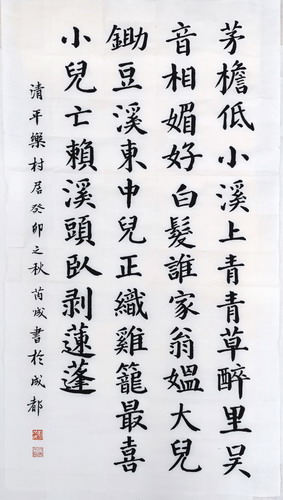 茅檐低小溪上青青草醉里吴
音相媚好白髮誰家翁媼大兒
鋤豆溪東中兒正織雞籠最喜
小兒亡賴溪頭臥剥蓮蓬
清平樂村居癸卯之秋芮成書於成都